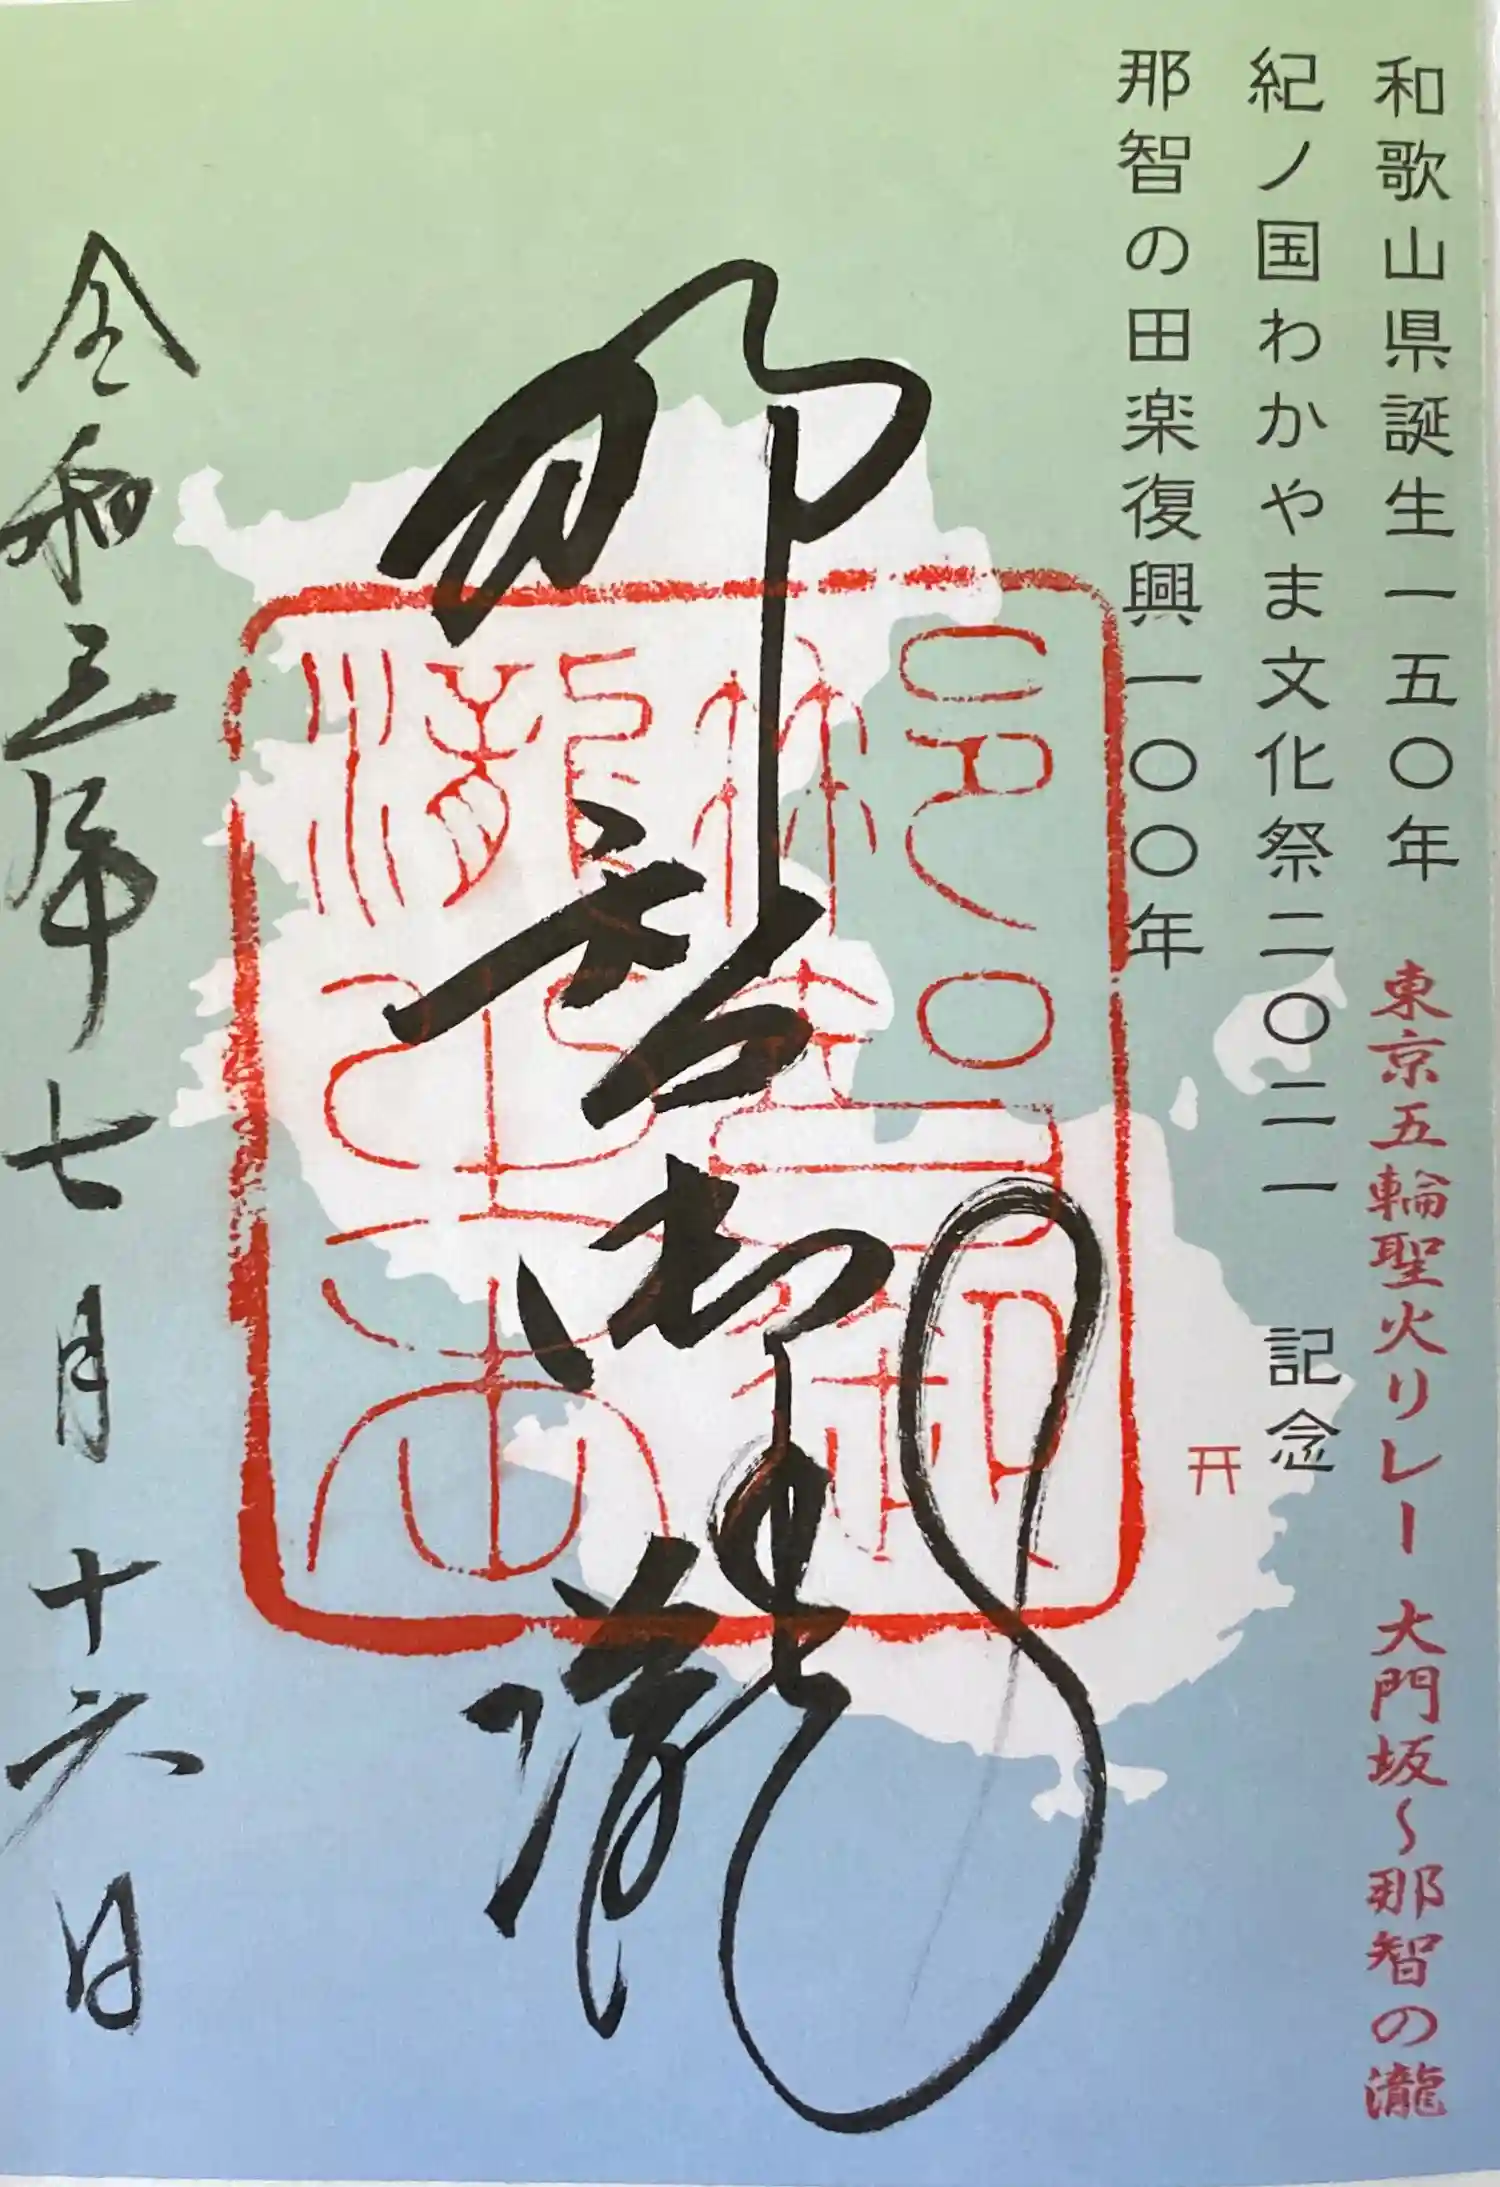 和歌山県誕生一五〇年 東京五輪聖火リレー 大門坂〜那智の瀧
紀ノ国わかやま文化祭二〇二一 記念
那智の田楽復興一〇〇年
那智御瀧
令和三年七月十六日